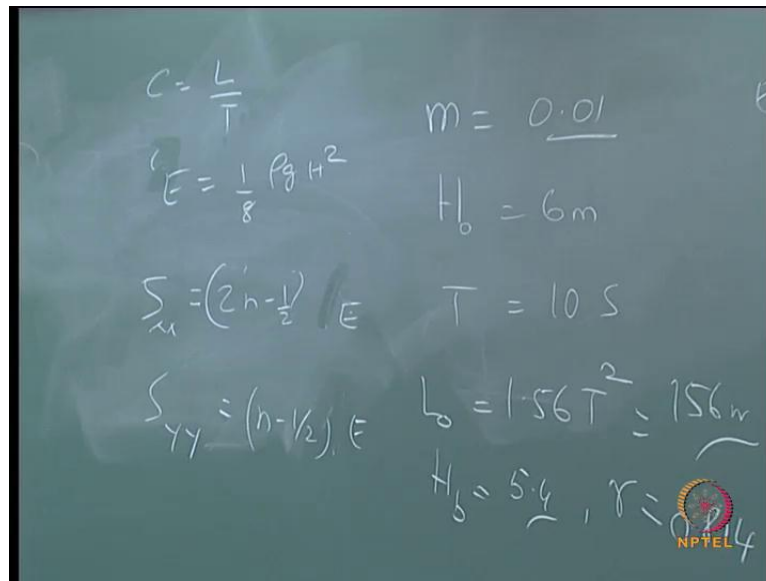 C = L/T
E = 1/8 ρg H²
Sxx = (2n - 1/2) E
Syy = (n - 1/2). E
m = 0.01
H₀ = 6m
T = 10 S
L₀ = 1.56 T² = 156m
Hb = 5.4, γ =
NPTEL